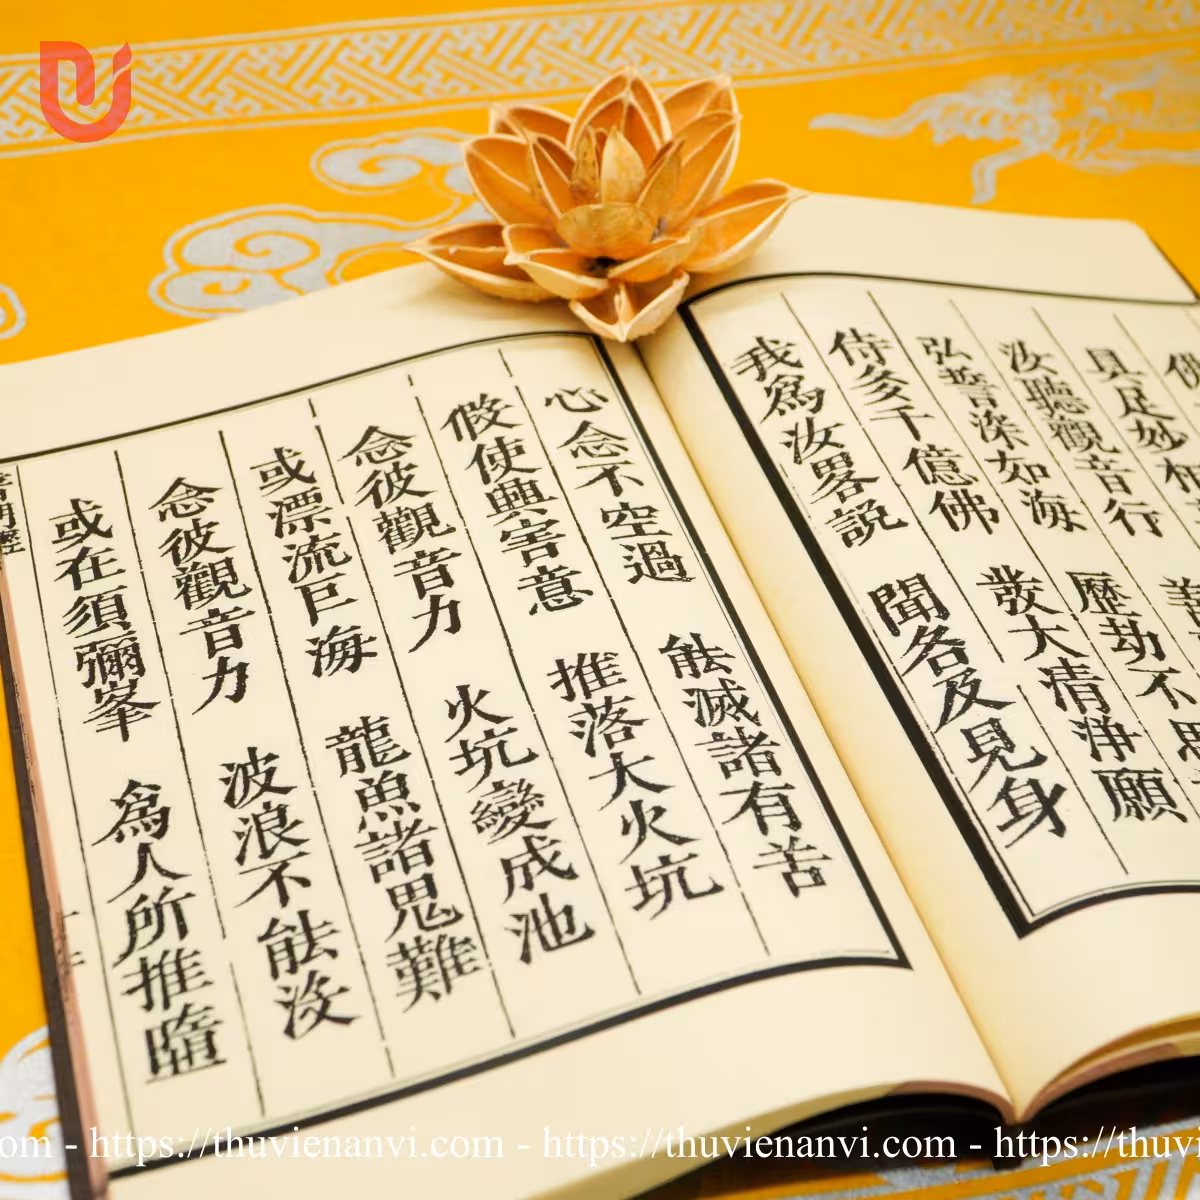 佛
具足妙相
汝聽觀音行 善
弘誓深如海 歷劫不思
侍多千億佛 發大清淨願
我爲汝畧説 聞名及見身
心念不空過 能滅諸有苦
假使興害意 推落大火坑
念彼觀音力 火坑變成池
或漂流巨海 龍魚諸鬼難
念彼觀音力 波浪不能沒
或在須彌峯 爲人所推墮
普門經
om - https://thuvienanvi.com - https://thuvi